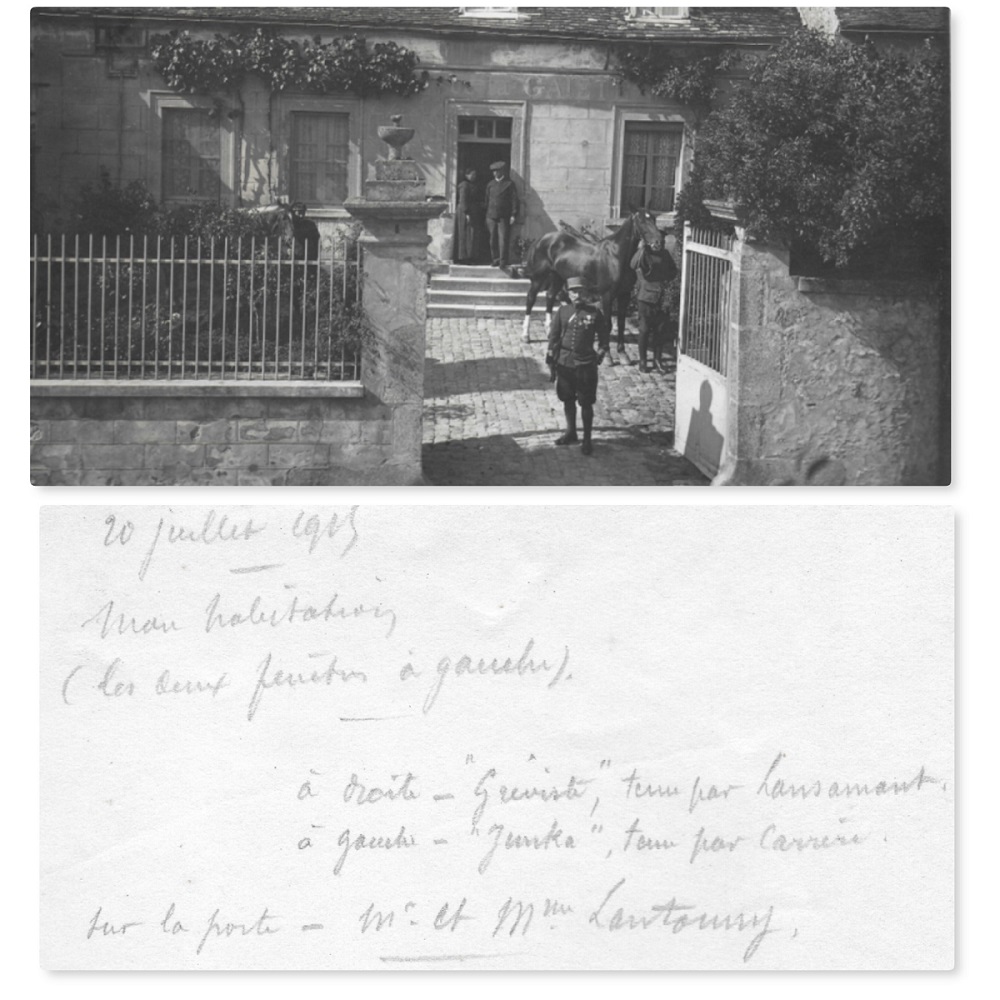 20 juillet 1915
Mon habitation
(les deux fenêtres à gauche).
à droite – "Gréviste", tenu par Lansamant.
à gauche – "Junka", tenu par Carrère.
sur la porte – Mr. et Mme